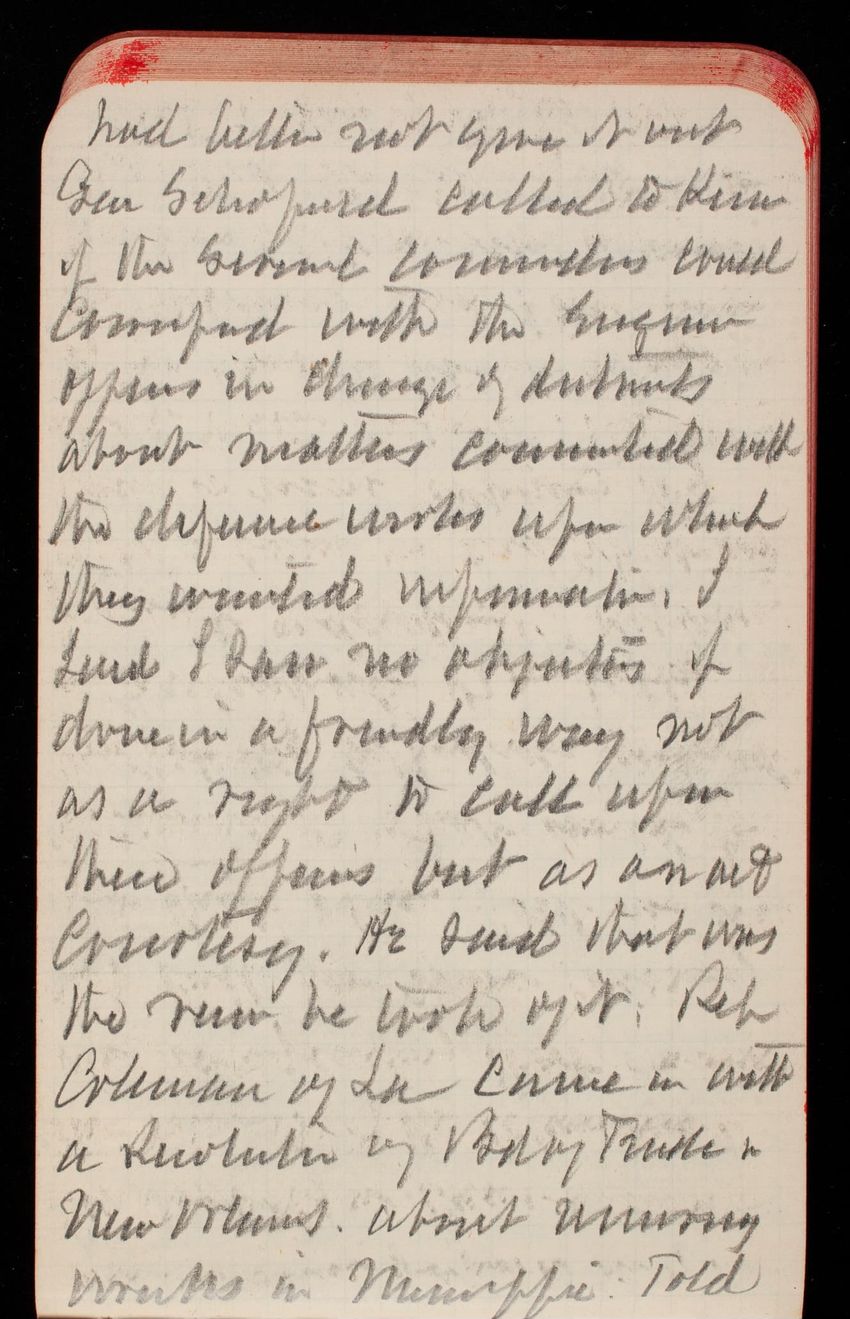 had better not give it out
Gen Schofield called to know
if the Several commanders could
Correspond with the Engineer
officers in charge of districts
about matters connected with
the defence works upon which
they wanted information. I
Said I Saw no objections if
done in a friendly way not
as a right to call upon
these officers but as an act
Courtesy. He said that was
the view he took of it. Rep
Coleman of La Came in with
a Resolution of Bd of Trade
New Orleans. about removing
wrecks in Mississippi. Told